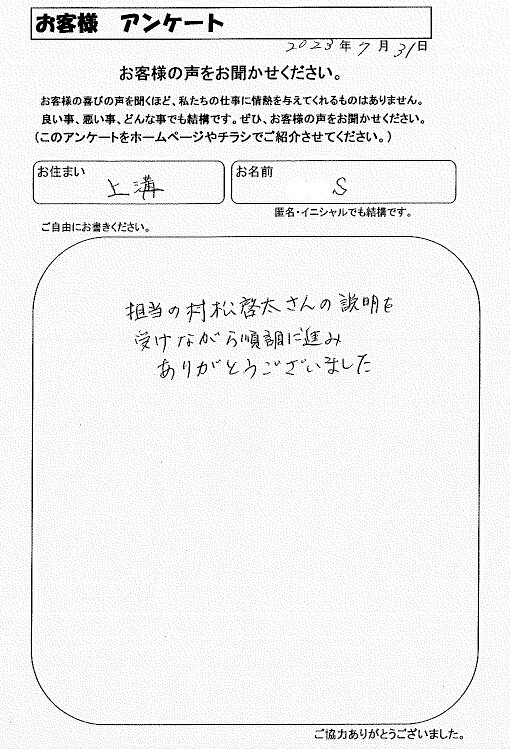 お客様 アンケート
2023年7月31日
お客様の声をお聞かせください。
お客様の喜びの声を聞くほど、私たちの仕事に情熱を与えてくれるものはありません。
良い事、悪い事、どんな事でも結構です。ぜひ、お客様の声をお聞かせください。
（このアンケートをホームページやチラシでご紹介させてください。）
お住まい 上溝
お名前 S
匿名・イニシャルでも結構です。
ご自由にお書きください。
担当の村松啓太さんの説明を
受けながら順調に進み
ありがとうございました
ご協力ありがとうございました。